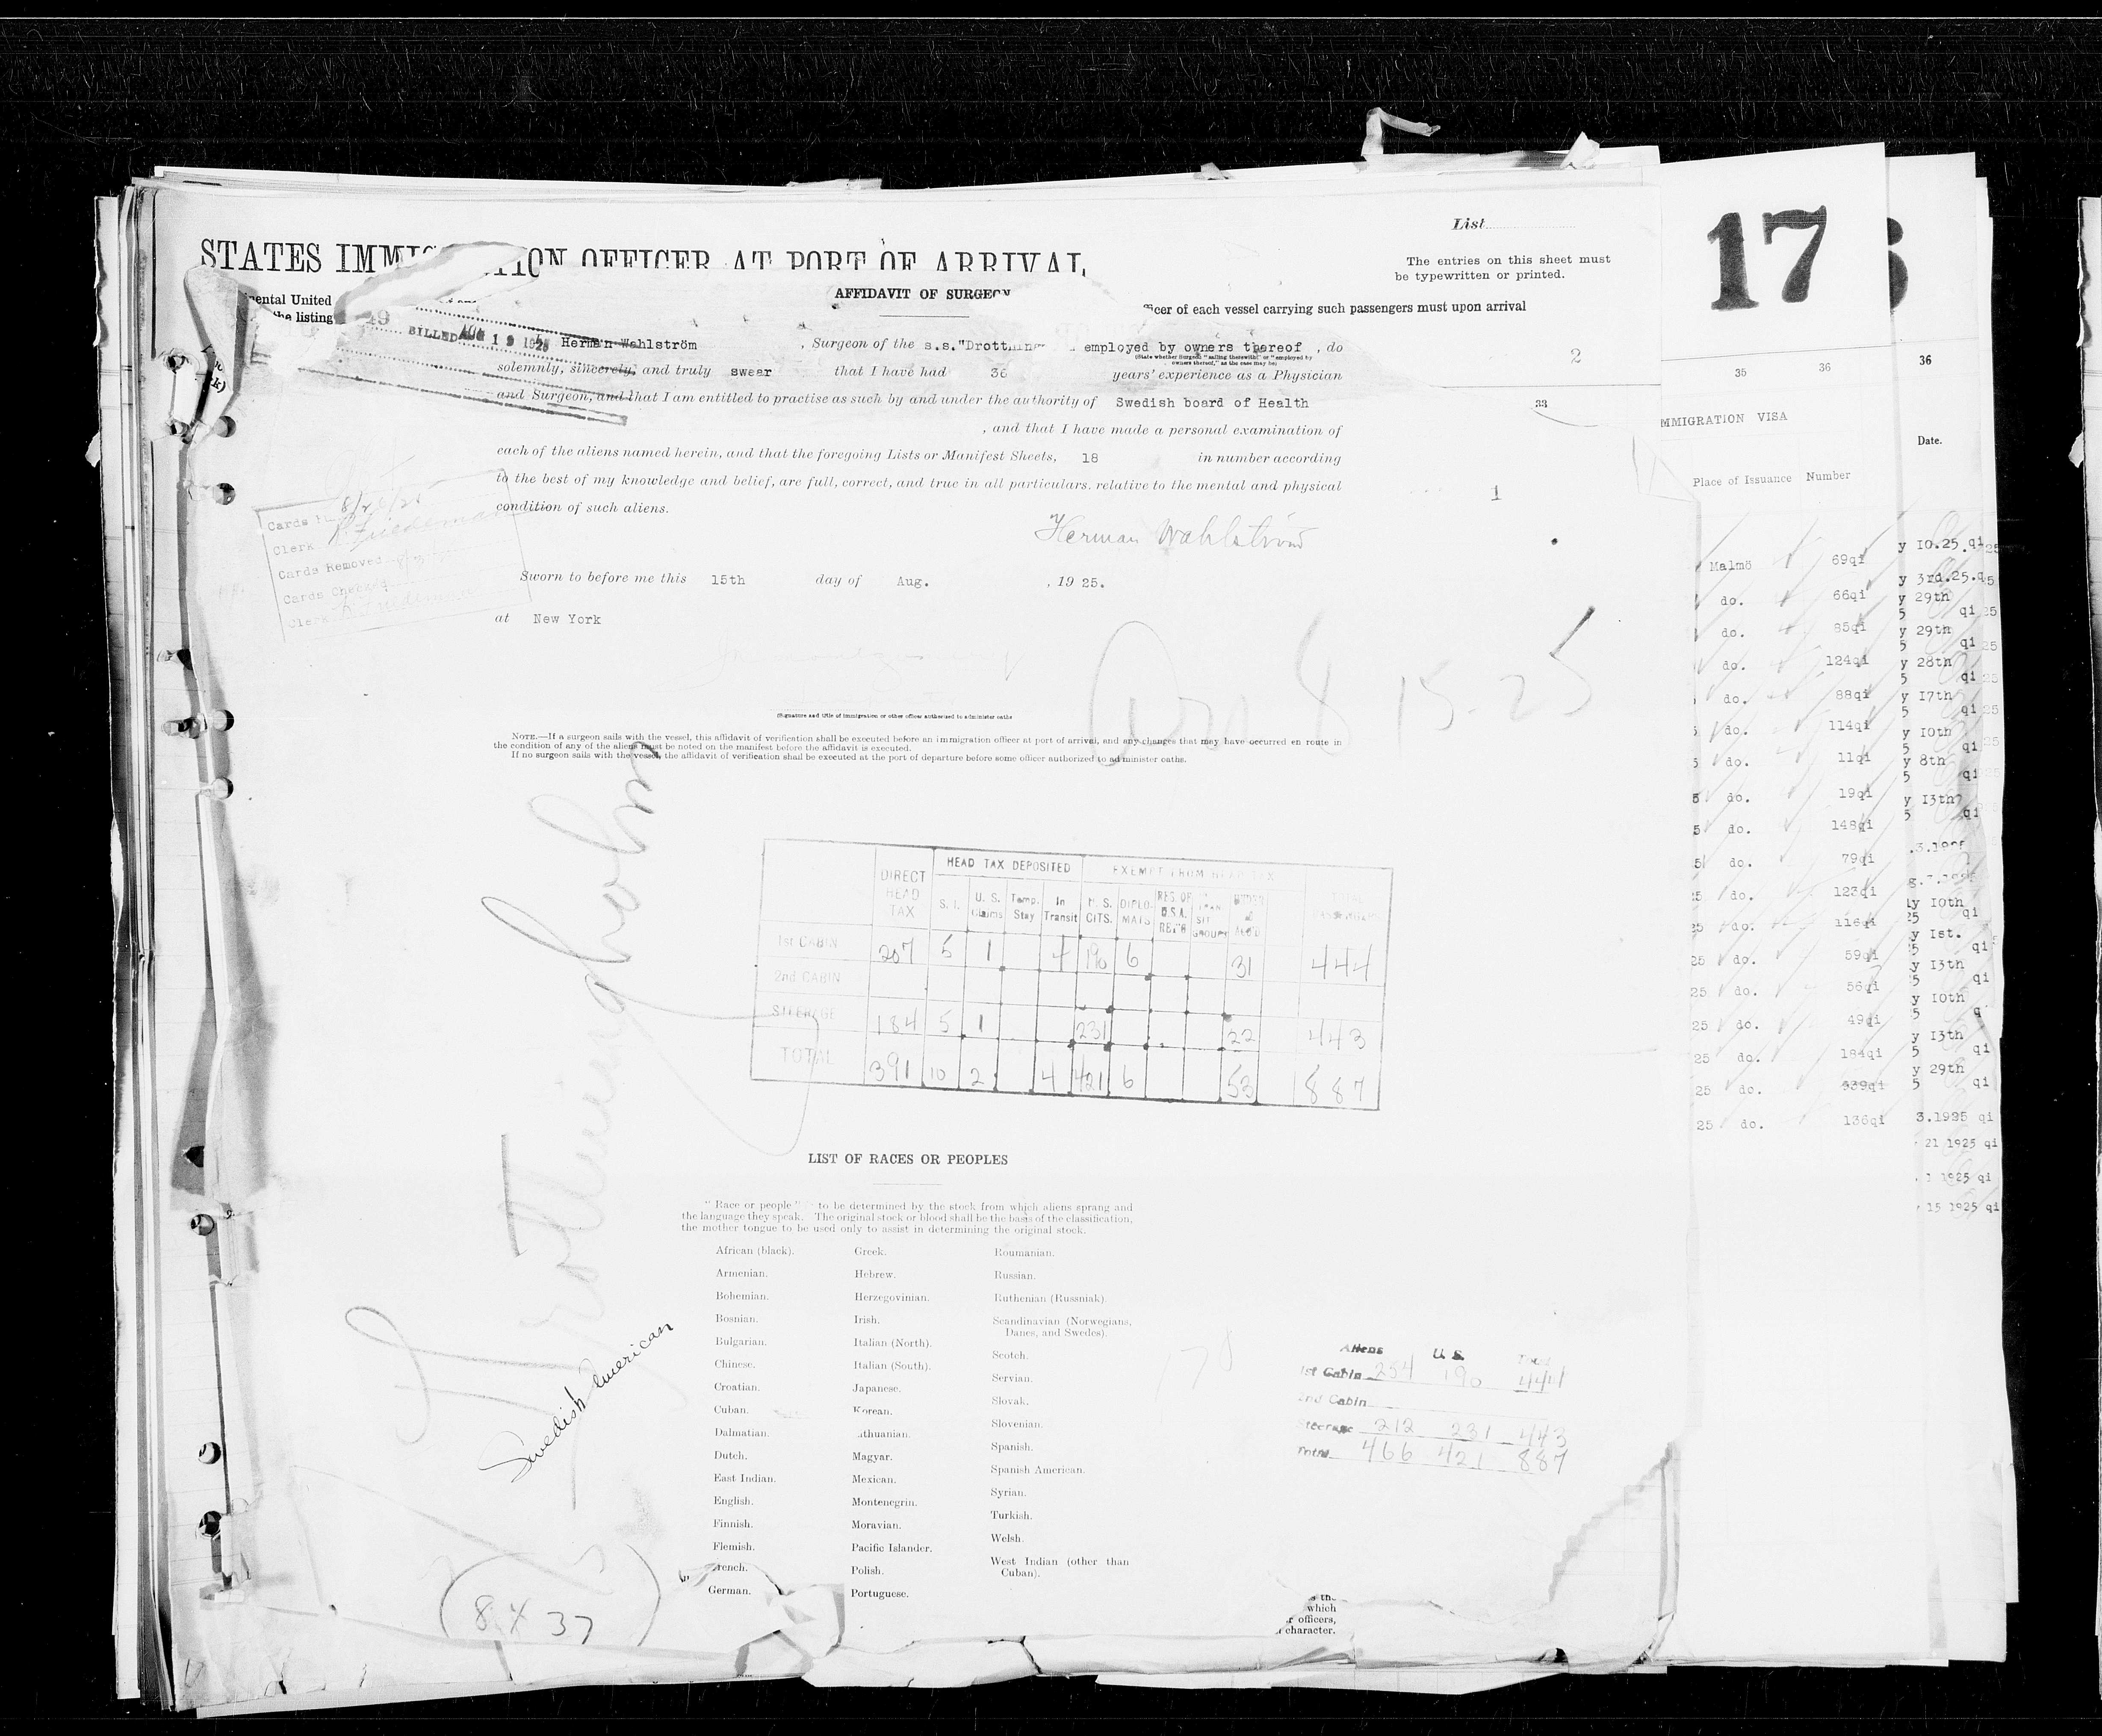 List
17
STATES IMMIG TION OFFICER AT PORT OF ARRIVAL
The entries on this sheet must
be typewritten or printed.
AFFIDAVIT OF SURGEON
the listing
ficer of each vessel carrying such passengers must upon arrival
BILLED AUG 19 1925
Herman Wahlström , Surgeon of the s.s."Drottning employed by owners thereof , do
(State whether Surgeon "sailing therewith" or "employed by
owners thereof," as the case may be)
2
35 36
36
solemnly, sincerely, and truly swear that I have had 36 years' experience as a Physician
and Surgeon, and that I am entitled to practise as such by and under the authority of Swedish board of Health
33
, and that I have made a personal examination of
each of the aliens named herein, and that the foregoing Lists or Manifest Sheets, 18 in number according
to the best of my knowledge and belief, are full, correct, and true in all particulars, relative to the mental and physical
condition of such aliens.
1
Herman Wahlström
Cards 8/20/25
Clerk R. Friedeman
Cards Removed
Cards Checked
Clerk
Sworn to before me this 15th day of Aug. , 19 25.
at New York
Arr 8 15-25
(Signature and title of immigration or other officer authorized to administer oaths
NOTE.—If a surgeon sails with the vessel, this affidavit of verification shall be executed before an immigration officer at port of arrival, and any changes that may have occurred en route in
the condition of any of the aliens must be noted on the manifest before the affidavit is executed.
If no surgeon sails with the vessel, the affidavit of verification shall be executed at the port of departure before some officer authorized to administer oaths.
Drottningholm
Swedish American
8 X 37
DIRECT HEAD TAX
HEAD TAX DEPOSITED
EXEMPT FROM HEAD TAX
S. I. U. S. Claims Temp. Stay In Transit U. S. CITS. DIPLO- MATS RES. OF U.S.A. RET'G
1st CABIN 207 5 1 4 190 6 31 444
2nd CABIN
STEERAGE 184 5 1 231 22 443
TOTAL 391 10 2 4 421 6 53 887
LIST OF RACES OR PEOPLES
"Race or people" to be determined by the stock from which aliens sprang and
the language they speak. The original stock or blood shall be the basis of the classification,
the mother tongue to be used only to assist in determining the original stock.
African (black).
Armenian.
Bohemian.
Bosnian.
Bulgarian.
Chinese.
Croatian.
Cuban.
Dalmatian.
Dutch.
East Indian.
English.
Finnish.
Flemish.
French.
German.
Greek.
Hebrew.
Herzegovinian.
Irish.
Italian (North).
Italian (South).
Japanese.
Korean.
Lithuanian.
Magyar.
Mexican.
Montenegrin.
Moravian.
Pacific Islander.
Polish.
Portuguese.
Roumanian.
Russian.
Ruthenian (Russniak).
Scandinavian (Norwegians,
Danes, and Swedes).
Scotch.
Servian.
Slovak.
Slovenian.
Spanish.
Spanish American.
Syrian.
Turkish.
Welsh.
West Indian (other than
Cuban).
178
Aliens U. S. Total
1st Cabin 254 190 444
2nd Cabin
Steerage 212 231 443
Total 466 421 887
which
officers,
character.
MMIGRATION VISA
Place of Issuance Number
Malmö 69qi
do. 66qi
do. 85qi
do. 124qi
do. 88qi
do. 114qi
do. 11qi
do. 19qi
do. 148qi
do. 79qi
do. 123qi
do. 116qi
do. 59qi
do. 56qi
25 do. 49qi
25 do. 184qi
25 do. 939qi
25 do. 136qi
Date.
y 10.25. qi
y 3rd.25.q
y 29th
y 29th
y 28th
y 17th
y 10th
y 8th
y 13th
y 10th
y 1st.
y 13th
y 10th
y 13th
y 29th
3.1925 qi
21 1925 qi
1 1925 qi
15 1925 qi